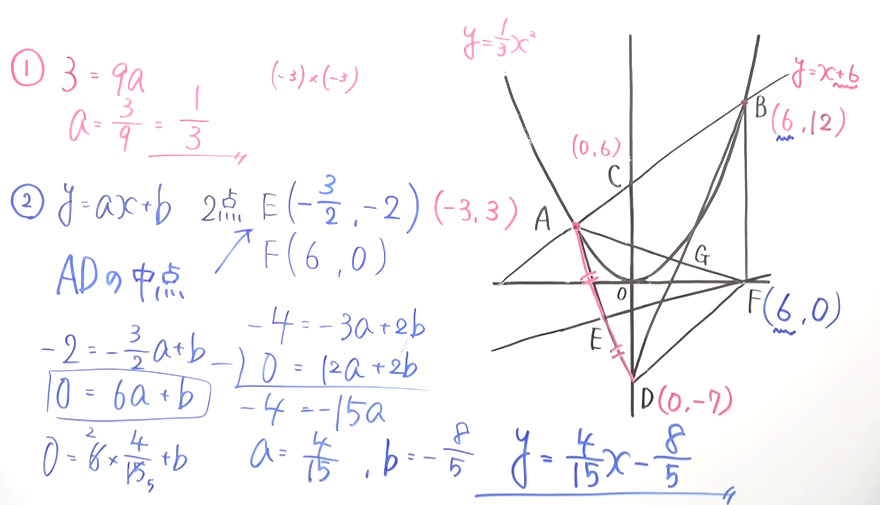 ① 3 = 9a
(-3)×(-3)
a = 3/9 = 1/3
② y = ax+b 2点 E(-3/2, -2) (-3, 3)
F(6, 0)
ADの中点
-2 = -3/2 a+b
0 = 6a+b
0 = 6² × 4/15₅ +b
-4 = -3a+2b
-) 0 = 12a+2b
-4 = -15a
a = 4/15, b = -8/5
y = 4/15 x - 8/5
y = 1/3 x²
y = x+6
B
(6, 12)
(0, 6)
C
A
G
O
F(6, 0)
E
D(0, -7)